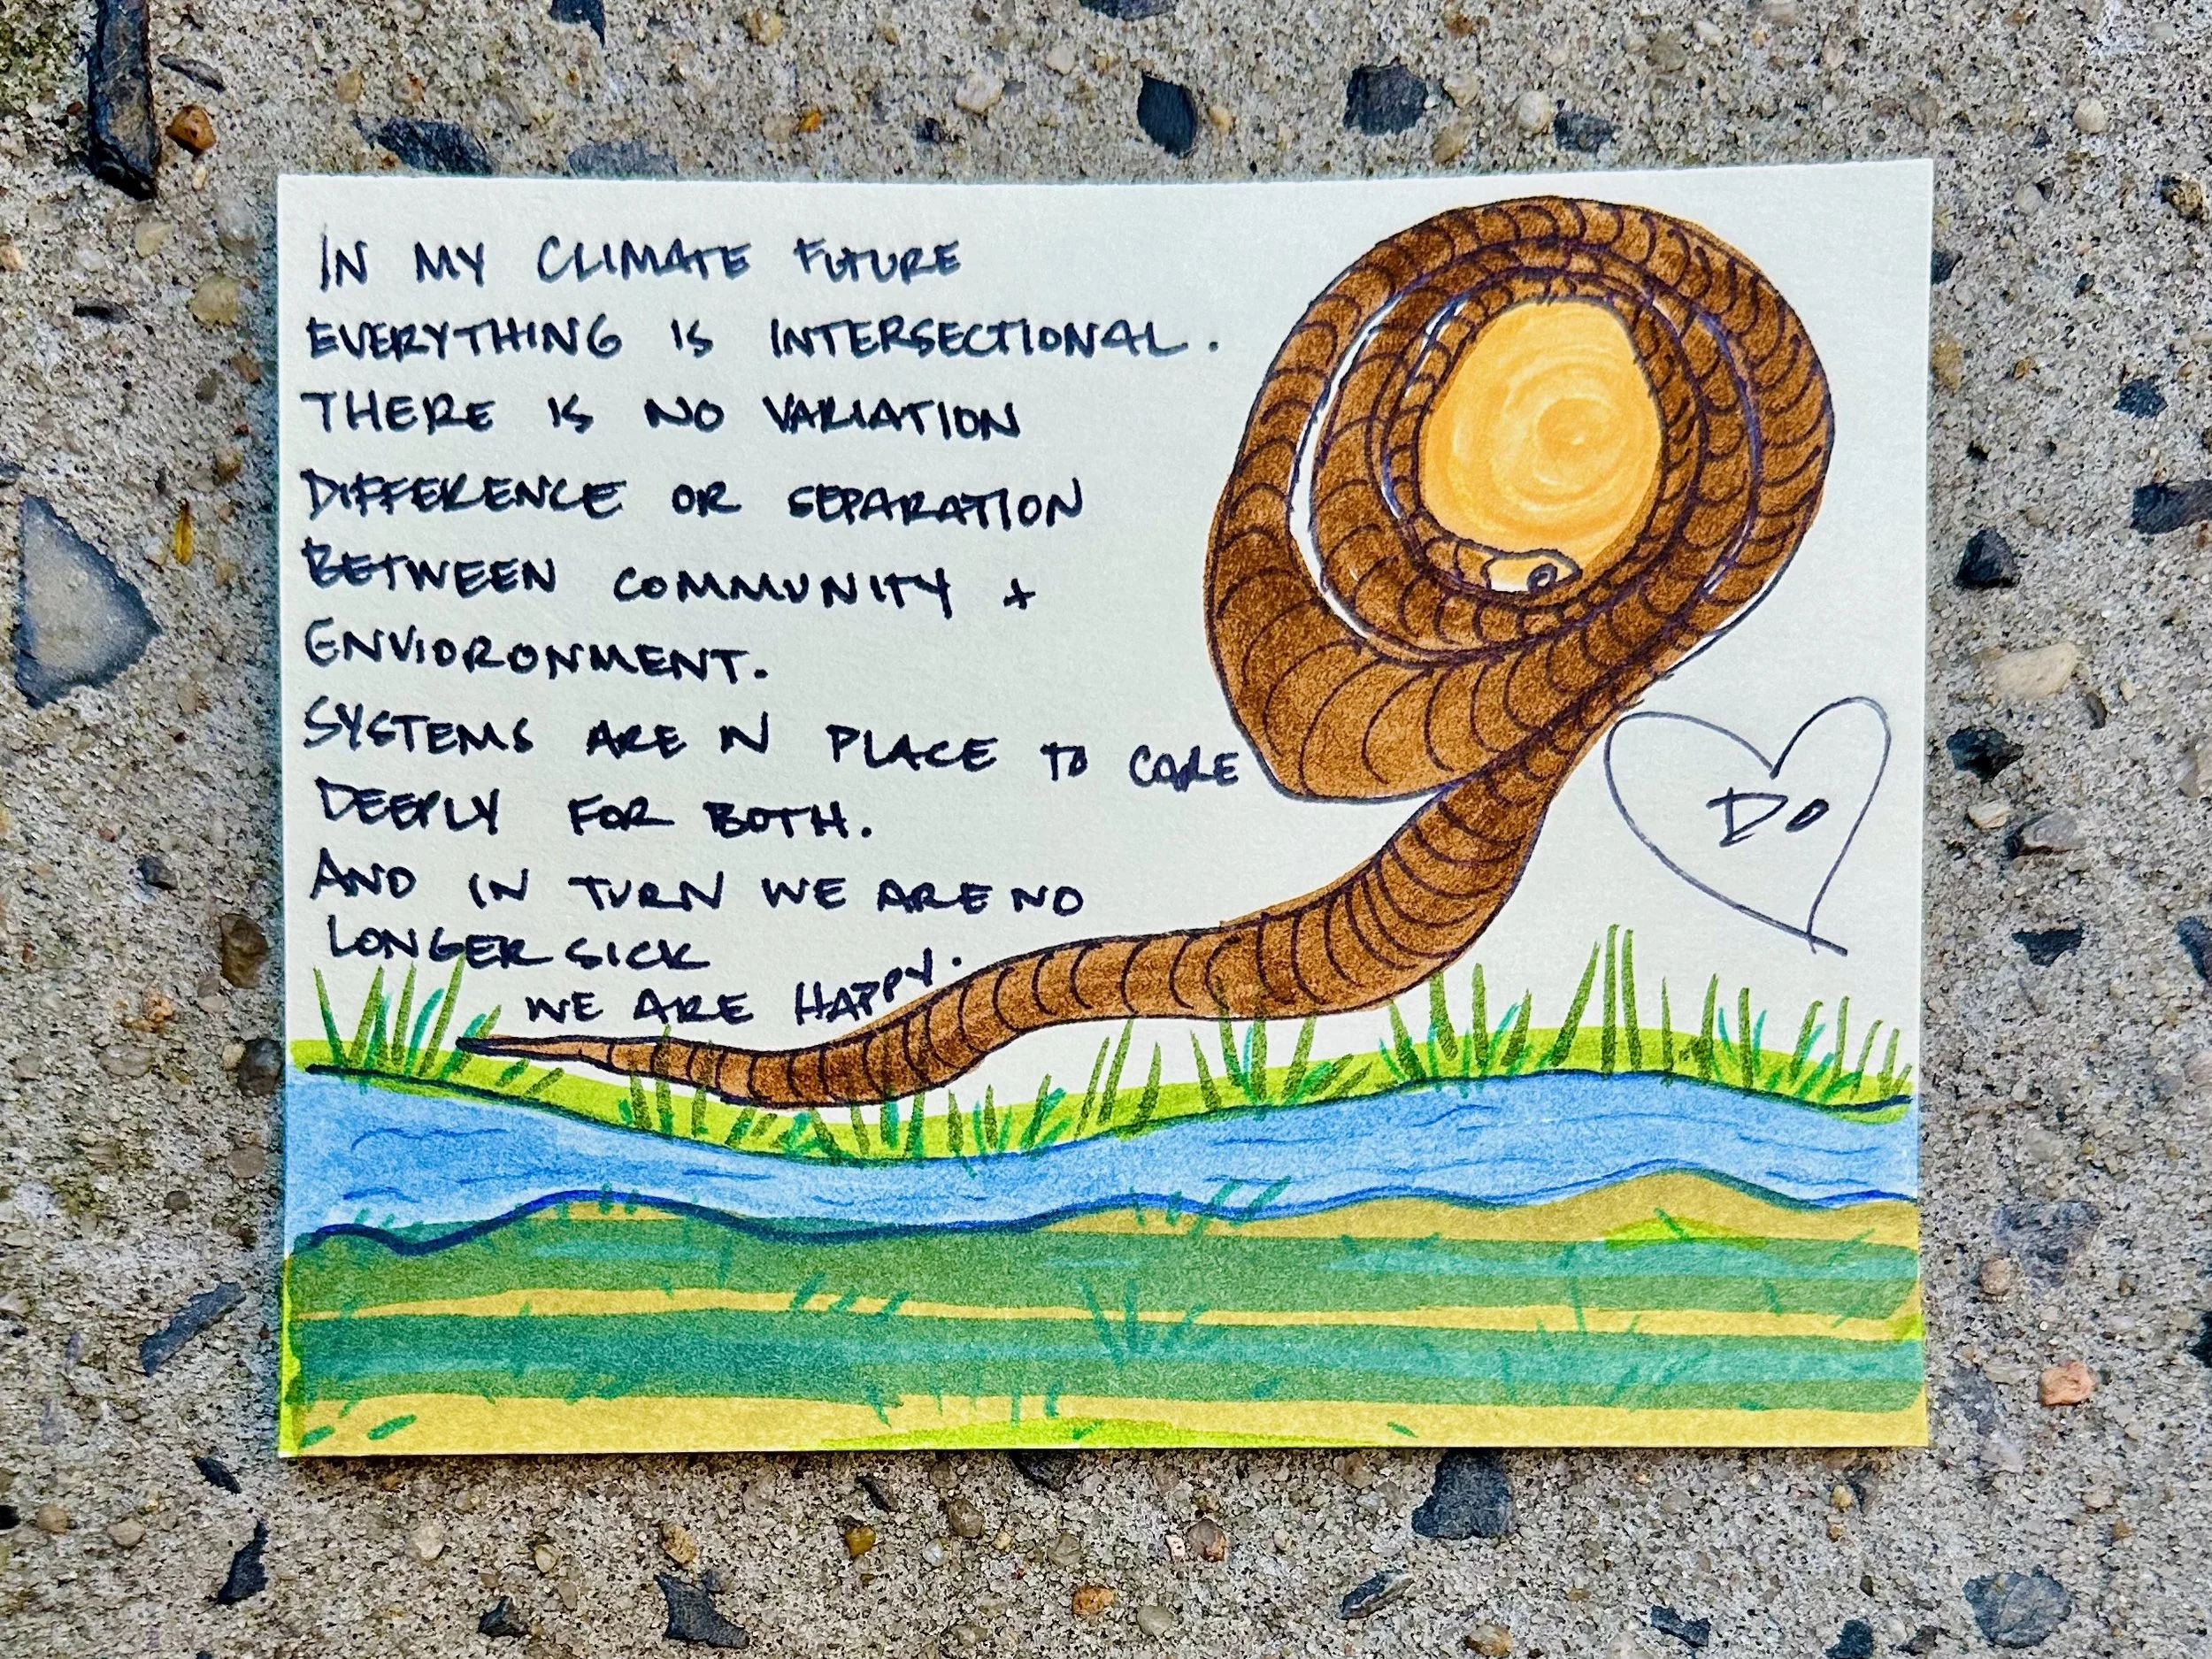 IN MY CLIMATE FUTURE
EVERYTHING IS INTERSECTIONAL.
THERE IS NO VARIATION
DIFFERENCE OR SEPARATION
BETWEEN COMMUNITY +
ENVIORONMENT.
SYSTEMS ARE IN PLACE TO CARE
DEEPLY FOR BOTH.
AND IN TURN WE ARE NO
LONGER SICK
WE ARE HAPPY.
DO